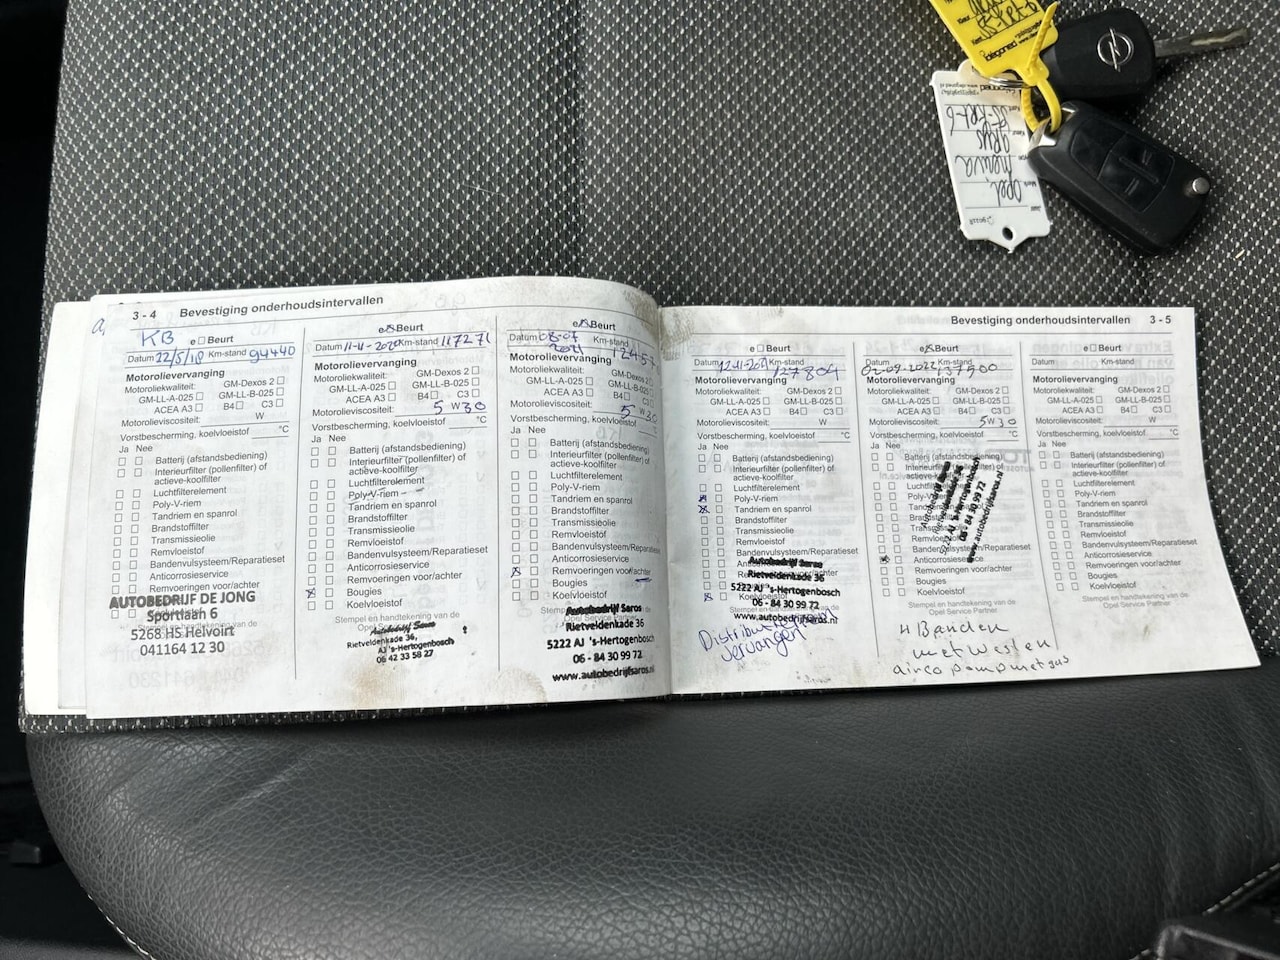 3 - 4 Bevestiging onderhoudsintervallen
KB e Beurt
Datum 22/5/18 Km-stand 94440
Motorolievervanging
Motoroliekwaliteit: GM-Dexos 2
GM-LL-A-025 GM-LL-B-025
ACEA A3 B4 C3
Motorolieviscositeit: W
Vorstbescherming, koelvloeistof °C
Ja Nee
Batterij (afstandsbediening)
Interieurfilter (pollenfilter) of
actieve-koolfilter
Luchtfilterelement
Poly-V-riem
Tandriem en spanrol
Brandstoffilter
Transmissieolie
Remvloeistof
Bandenvulsysteem/Reparatieset
Anticorrosieservice
Remvoeringen voor/achter
AUTOBEDRIJF DE JONG
Sportlaan 6
5268 HS Helvoirt
041164 12 30
e Beurt
Datum 11-11-2020 Km-stand 117271
Motorolievervanging
Motoroliekwaliteit: GM-Dexos 2
GM-LL-A-025 GM-LL-B-025
ACEA A3 B4 C3
Motorolieviscositeit: 5 W 30
Vorstbescherming, koelvloeistof °C
Ja Nee
Batterij (afstandsbediening)
Interieurfilter (pollenfilter) of
actieve-koolfilter
Luchtfilterelement
Poly-V-riem
Tandriem en spanrol
Brandstoffilter
Transmissieolie
Remvloeistof
Bandenvulsysteem/Reparatieset
Anticorrosieservice
Remvoeringen voor/achter
Bougies
Koelvloeistof
Stempel en handtekening van de
Autobedrijf Saros
Rietveldenkade 36,
AJ 's-Hertogenbosch
06 42 33 58 27
e Beurt
Datum 08-07 Km-stand
2021
Motorolievervanging
Motoroliekwaliteit: GM-Dexos 2
GM-LL-A-025 GM-LL-B-025
ACEA A3 B4 C3
Motorolieviscositeit: 5 W 30
Vorstbescherming, koelvloeistof °C
Ja Nee
Batterij (afstandsbediening)
Interieurfilter (pollenfilter) of
actieve-koolfilter
Luchtfilterelement
Poly-V-riem
Tandriem en spanrol
Brandstoffilter
Transmissieolie
Remvloeistof
Bandenvulsysteem/Reparatieset
Anticorrosieservice
Remvoeringen voor/achter
Bougies
Koelvloeistof
Autobedrijf Saros
Rietveldenkade 36
5222 AJ 's-Hertogenbosch
06 - 84 30 99 72
www.autobedrijfsaros.nl
Bevestiging onderhoudsintervallen 3 - 5
e Beurt
Datum 12-11-2021 Km-stand 127804
Motorolievervanging
Motoroliekwaliteit: GM-Dexos 2
GM-LL-A-025 GM-LL-B-025
ACEA A3 B4 C3
Motorolieviscositeit: W
Vorstbescherming, koelvloeistof °C
Ja Nee
Batterij (afstandsbediening)
Interieurfilter (pollenfilter) of
actieve-koolfilter
Luchtfilterelement
Poly-V-riem
Tandriem en spanrol
Brandstoffilter
Transmissieolie
Remvloeistof
Bandenvulsysteem/Reparatieset
Autobedrijf Saros
Rietveldenkade 36
5222 AJ 's-Hertogenbosch
06 - 84 30 99 72
www.autobedrijfsaros.nl
vervangen
e Beurt
Datum 02-09-2022 Km-stand 137900
Motorolievervanging
Motoroliekwaliteit: GM-Dexos 2
GM-LL-A-025 GM-LL-B-025
ACEA A3 B4 C3
Motorolieviscositeit: 5 W 30
Vorstbescherming, koelvloeistof °C
Ja Nee
Batterij (afstandsbediening)
Interieurfilter (pollenfilter) of
actieve-koolfilter
Tandriem en spanrol
Brandstoffilter
Transmissieolie
Remvloeistof
Bandenvulsysteem/Reparatieset
Anticorrosieservice
Remvoeringen voor/achter
Bougies
Koelvloeistof
Stempel en handtekening van de
Opel Service Partner
5222 AJ 's-Hertogenbosch
06 - 84 30 99 72
www.autobedrijfsaros.nl
4 Banden
airco pomp met gas
e Beurt
Datum Km-stand
Motorolievervanging
Motoroliekwaliteit: GM-Dexos 2
GM-LL-A-025 GM-LL-B-025
ACEA A3 B4 C3
Motorolieviscositeit: W
Vorstbescherming, koelvloeistof °C
Ja Nee
Batterij (afstandsbediening)
Interieurfilter (pollenfilter) of
actieve-koolfilter
Luchtfilterelement
Poly-V-riem
Tandriem en spanrol
Brandstoffilter
Transmissieolie
Remvloeistof
Bandenvulsysteem/Reparatieset
Anticorrosieservice
Remvoeringen voor/achter
Bougies
Koelvloeistof
Stempel en handtekening van de
Opel Service Partner
Opel